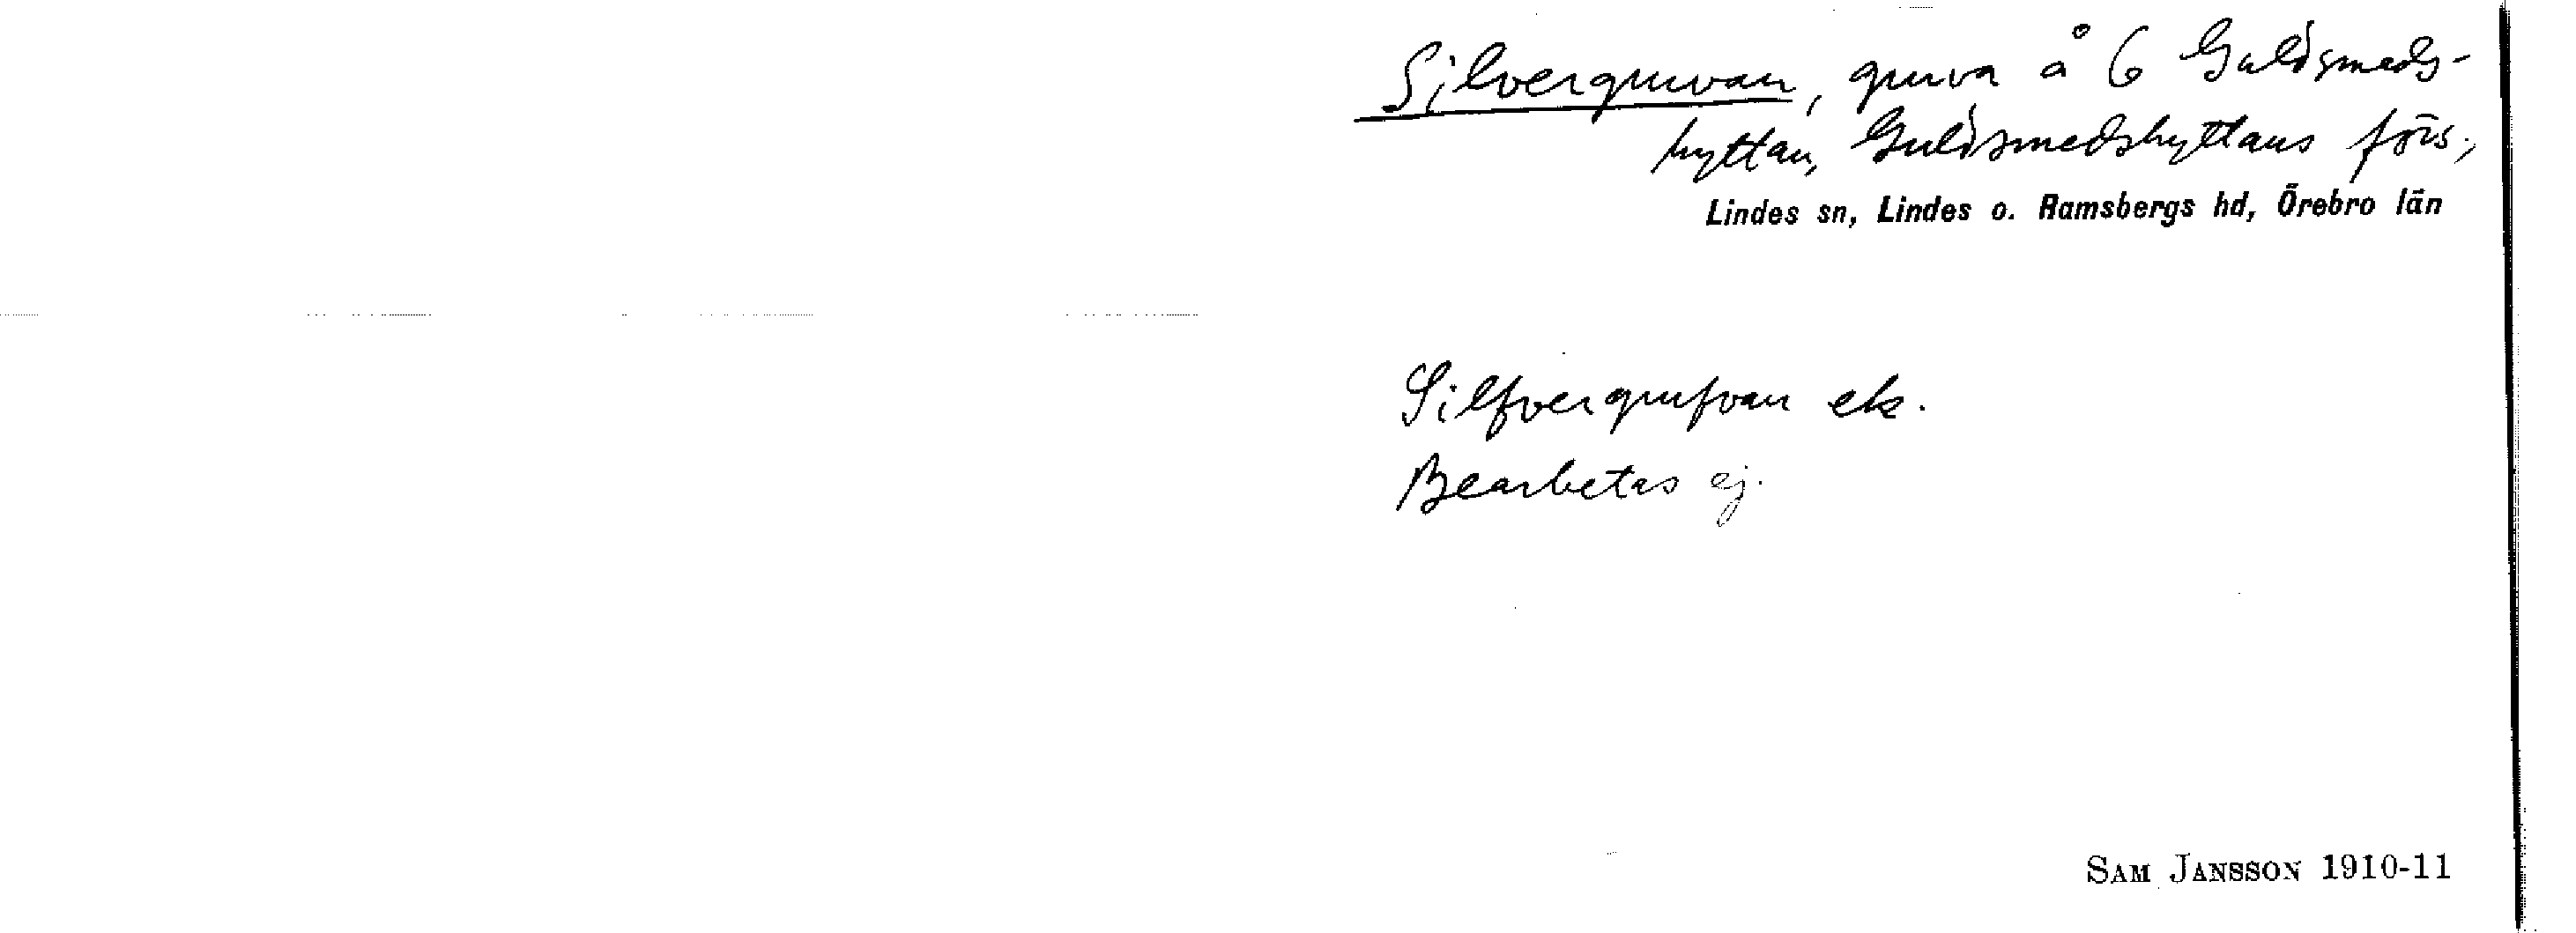 Silvergruvan, gruva å 6 Guldsmeds-
hyttan, Guldsmedshyttans förs.,
Lindes sn, Lindes o. Ramsbergs hd, Örebro län
Silfvergrufvan ek.
Bearbetas ej.
SAM JANSSON 1910-11